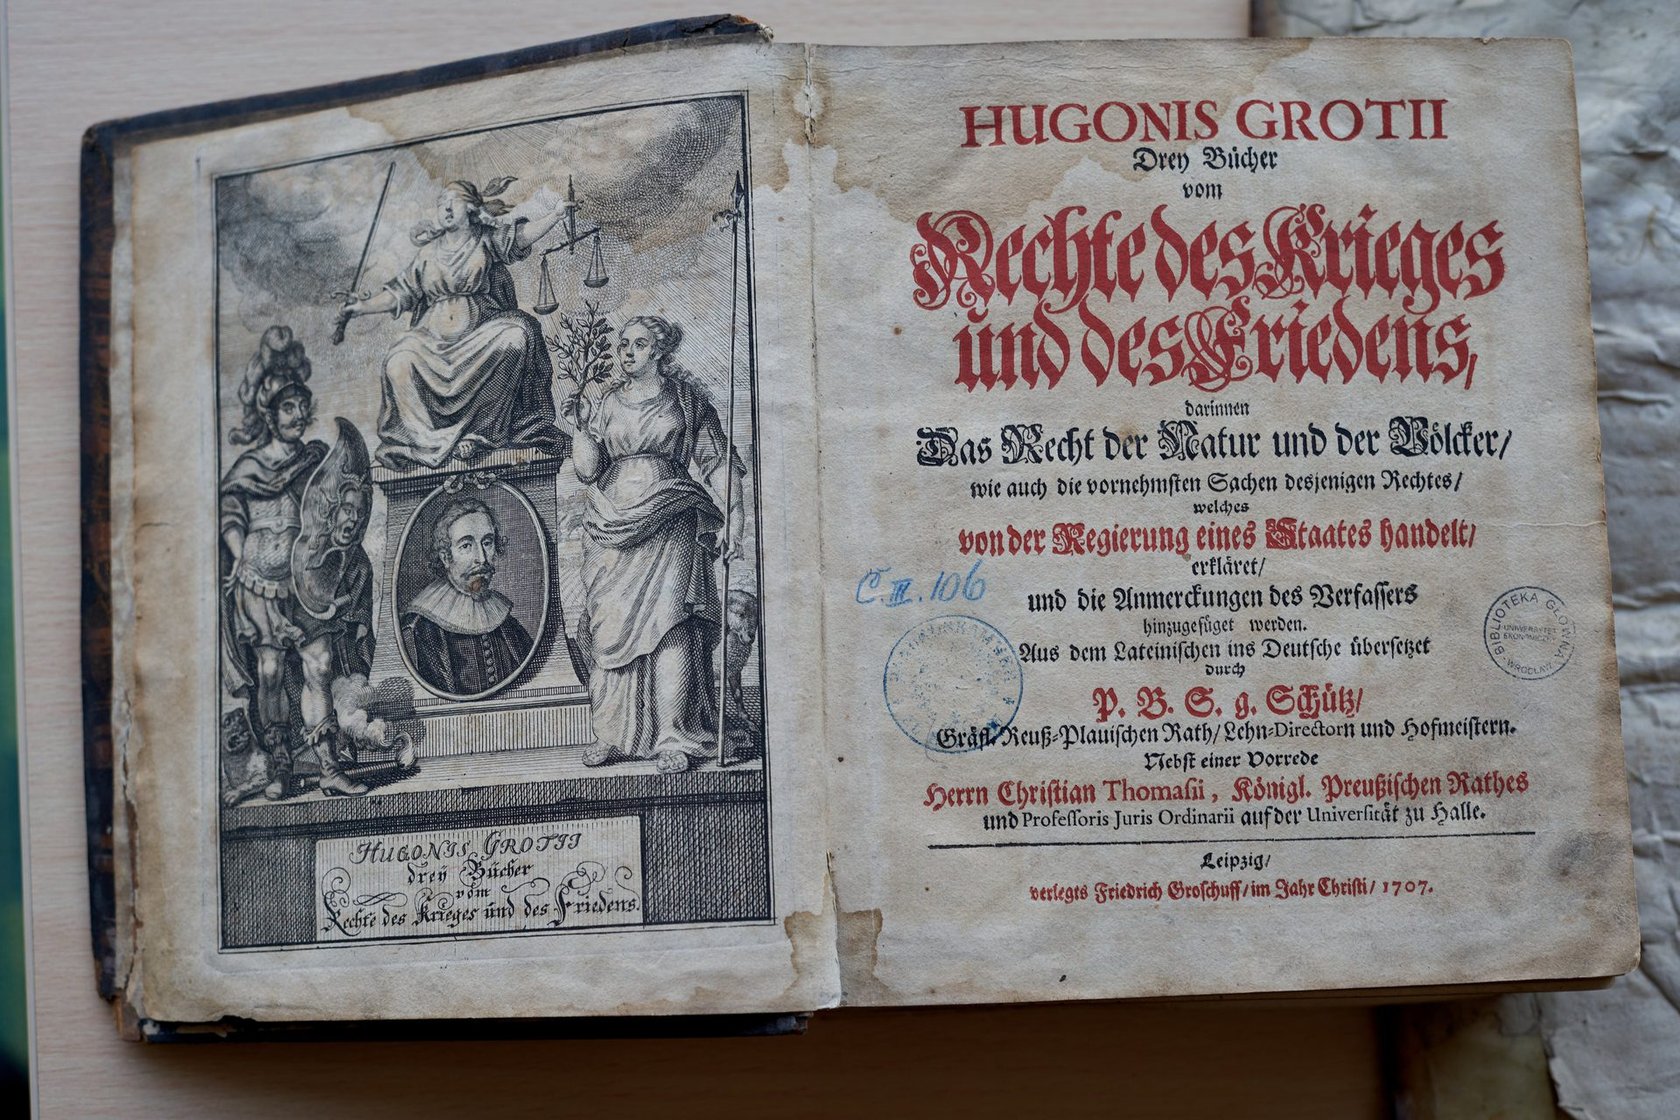 HUGONIS GROTII
drey Bücher
vom
Rechte des Krieges und des Friedens.
HUGONIS GROTII
Drey Bücher
vom
Rechte des Krieges
und des Friedens,
darinnen
Das Recht der Natur und der Völcker/
wie auch die vornehmsten Sachen desjenigen Rechtes/
welches
von der Regierung eines Staates handelt/
erkläret/
und die Anmerckungen des Verfassers
hinzugefüget werden.
Aus dem Lateinischen ins Deutsche übersetzet
durch
P. B. S. g. Schütz/
Gräfl. Reuß-Plauischen Rath/ Lehn-Directorn und Hofmeistern.
Nebst einer Vorrede
Herrn Christian Thomasii, Königl. Preußischen Rathes
und Professoris Juris Ordinarii auf der Universität zu Halle.
Leipzig/
verlegts Friedrich Groschuff/ im Jahr Christi/ 1707.
C. III. 106
BIBLIOTEKA GŁÓWNA
UNIWERSYTET
EKONOMICZNY
WROCŁAW